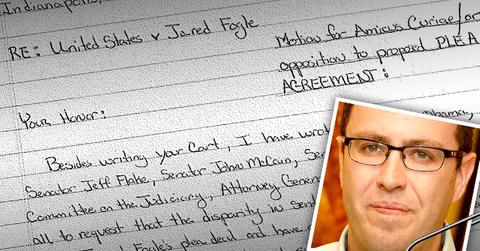 Indianapolis,
RE: United States v Jared Fogle
Motion for Amicus Curiae/or
opposition to proposed PLEA
AGREEMENT:
Your Honor:
Besides writing your Court, I have wrot Obama,
Senator Jeff Flake, Senator John McCain, Se
Committee on the Judiciary, Attorney Gener
all to request that the disparity in sent
Fogle's plea deal and have